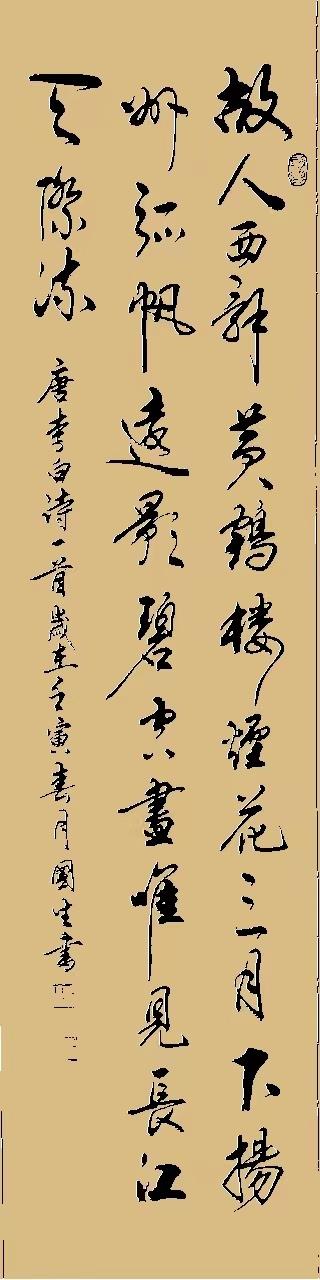 故人西辞黄鹤楼煙花三月下揚
州孤帆遠影碧空盡唯見長江
天際流
唐李白诗一首歲在壬寅春月國生書